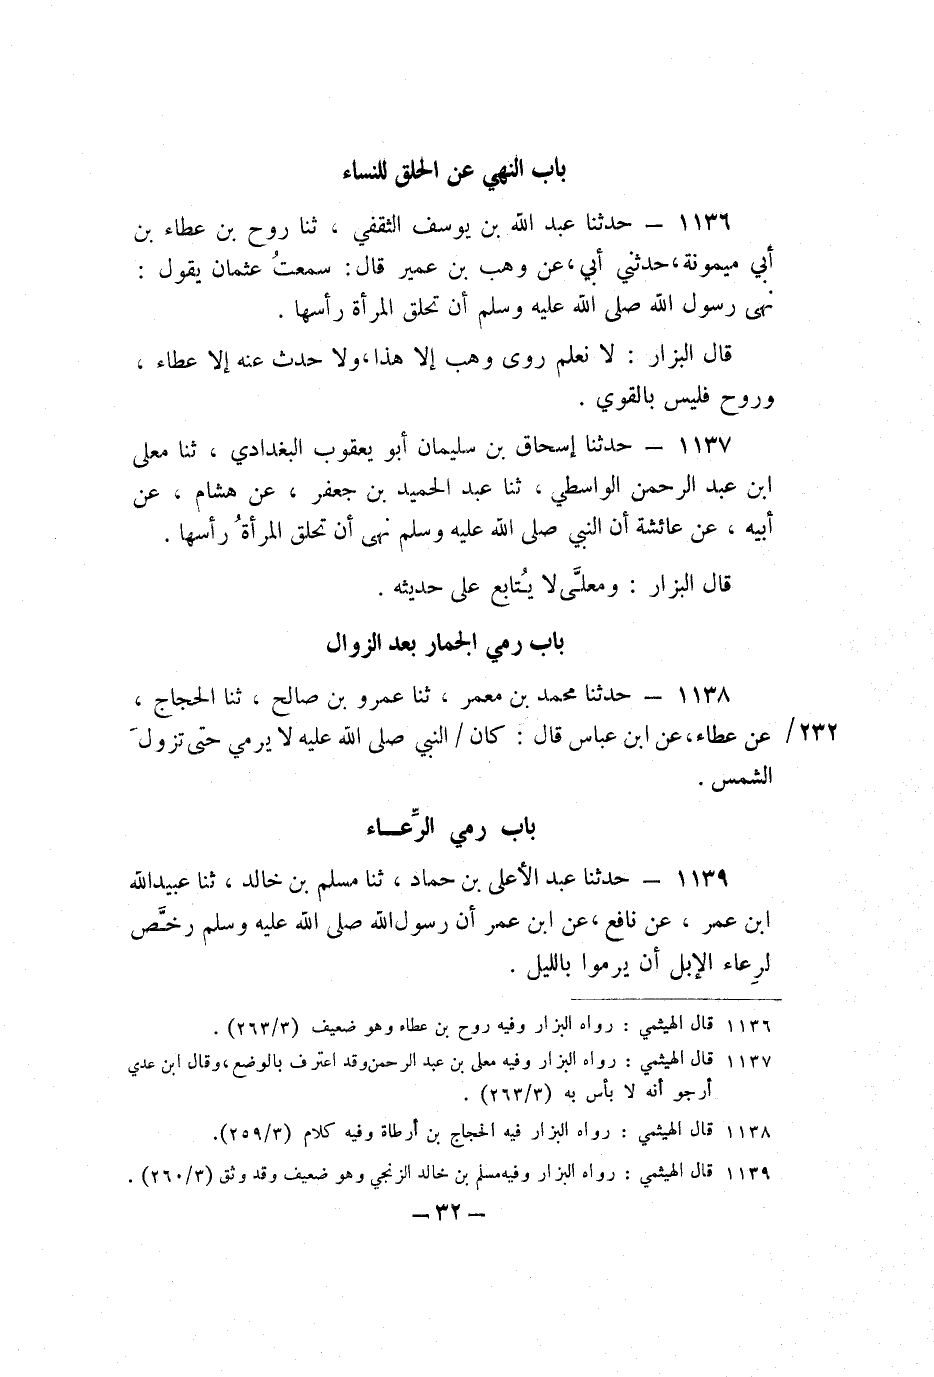 باب النهي عن الحلق للنساء
١١٣٦ – حدثنا عبد الله بن يوسف الثقفي ، ثنا روح بن عطاء بن
أبي ميمونة،حدثني أبي،عن وهب بن عمير قال: سمعتُ عثمان يقول :
نهى رسول الله صلى الله عليه وسلم أن تحلق المرأة رأسها .
قال البزار : لا نعلم روى وهب إلا هذا،ولا حدث عنه إلا عطاء ،
وروح فليس بالقوي .
١١٣٧ – حدثنا إسحاق بن سليمان أبو يعقوب البغدادي ، ثنا معلى
ابن عبد الرحمن الواسطي ، ثنا عبد الحميد بن جعفر ، عن هشام ، عن
أبيه ، عن عائشة أن النبي صلى الله عليه وسلم نهى أن تحلق المرأةُ رأسها .
قال البزار : ومعلَّى لا يُتابع على حديثه .
باب رمي الجمار بعد الزوال
١١٣٨ – حدثنا محمد بن معمر ، ثنا عمرو بن صالح ، ثنا الحجاج ،
٢٣٢/ عن عطاء،عن ابن عباس قال : كان / النبي صلى الله عليه لا يرمي حتى تزولَ
الشمس .
باب رمي الرِّعـــاء
١١٣٩ – حدثنا عبد الأعلى بن حماد ، ثنا مسلم بن خالد ، ثنا عبيدالله
ابن عمر ، عن نافع ،عن ابن عمر أن رسول الله صلى الله عليه وسلم رخَّص
لرِعاء الإبل أن يرموا بالليل .
١١٣٦ قال الهيثمي : رواه البزار وفيه روح بن عطاء وهو ضعيف (٢٦٣/٣) .
١١٣٧ قال الهيثمي : رواه البزار وفيه معلى بن عبد الرحمن وقد اعترف بالوضع ،وقال ابن عدي
أرجو أنه لا بأس به (٢٦٣/٣) .
١١٣٨ قال الهيثمي : رواه البزار فيه الحجاج بن أرطاة وفيه كلام (٢٥٩/٣).
١١٣٩ قال الهيثمي : رواه البزار وفيه مسلم بن خالد الزنجي وهو ضعيف وقد وثق (٢٦٠/٣) .
– ٣٢ –